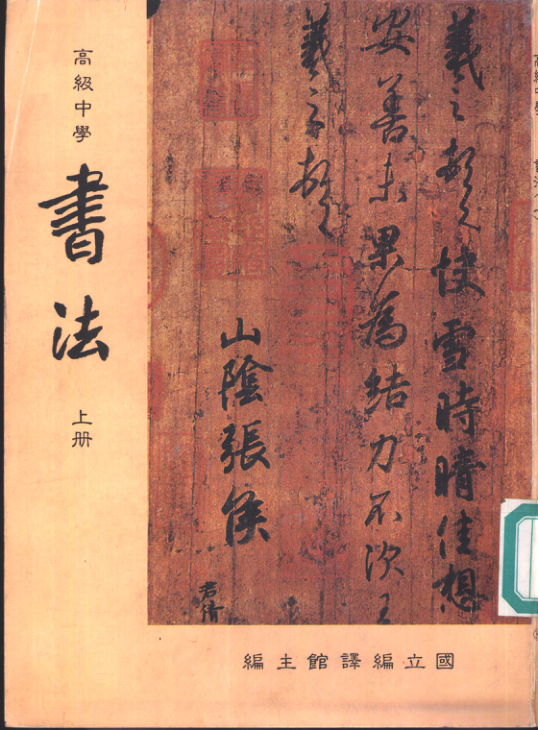 高級中學
書法
上册
羲之頓首快雪時晴佳想
安善未果為結力不次王
羲之頓首
山陰張侯
君倩
國立編譯館主編